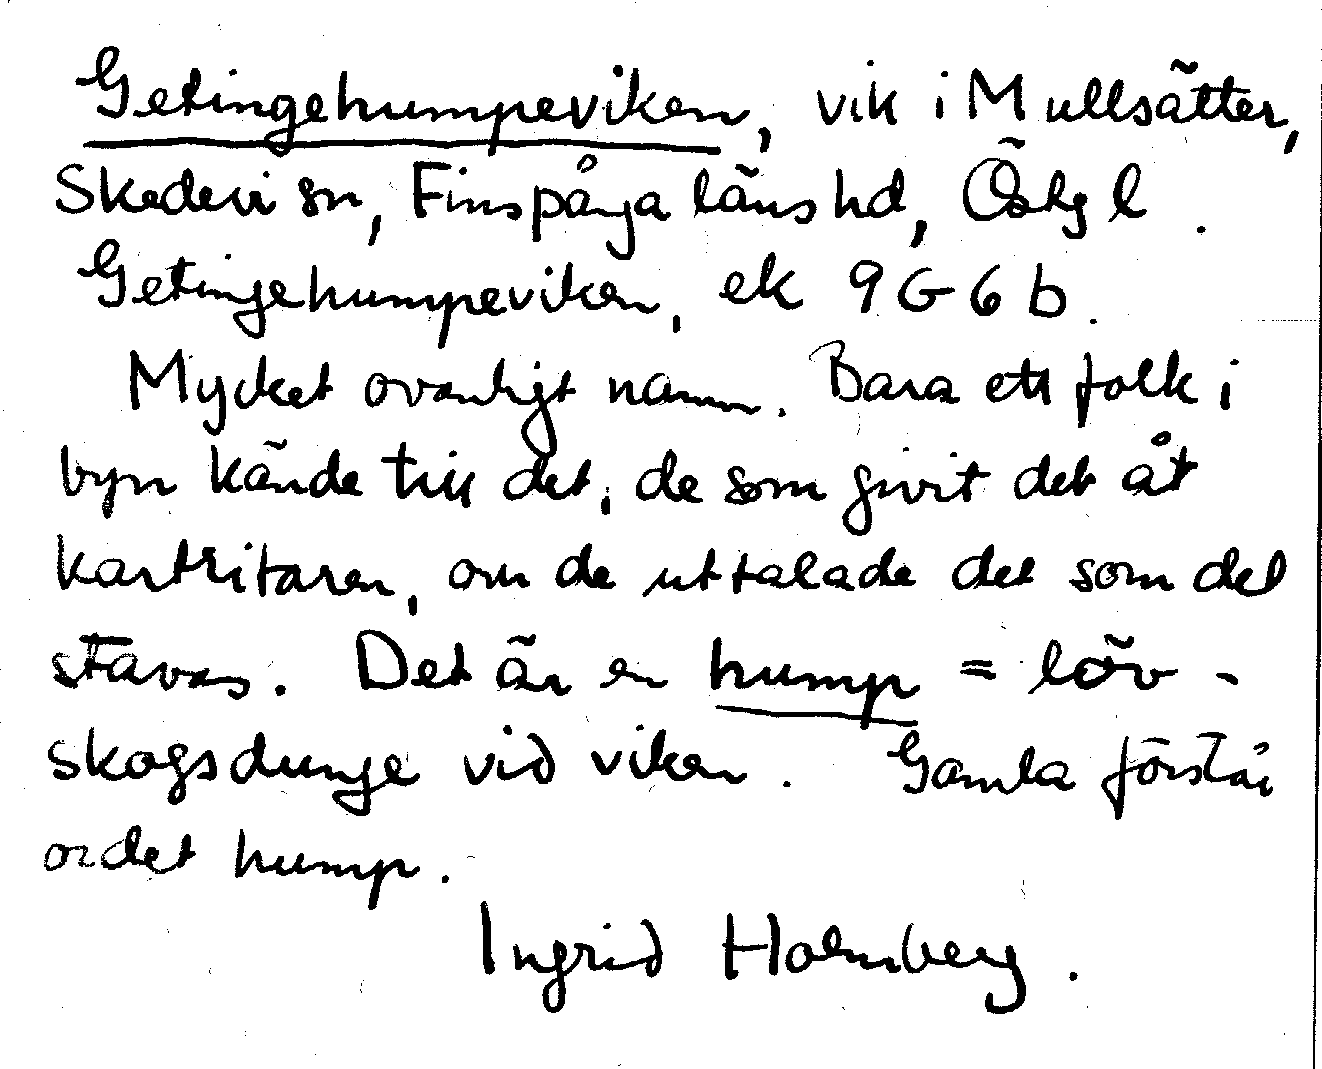 Getingehumpeviken, vik i Mullsätter,
Skedevi sn, Finspånga läns hd, Östg l.
Getingehumpeviken, ek 9G6b.
Mycket ovanligt namn. Bara ett folk i
byn kände till det, de som givit det åt
kartritaren, om de uttalade det som det
stavas. Det är en hump = löv-
skogsdunge vid viken. Gamla förstår
ordet hump.
Ingrid Holmberg.